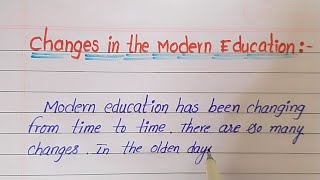 Changes in the Modern Education:-
Modern education has been changing
from time to time. There are so many
changes. In the olden days